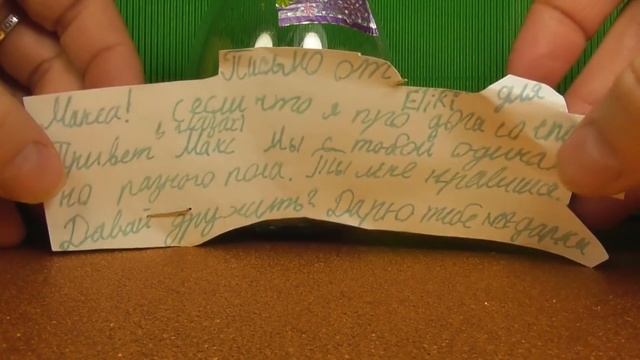 Письмо от
Eliki для
Макса! (если что я про
Привет Макс Мы с тобой
но разного пола. Ты мне нравишся.
Давай дружить? Дарю тебе подарки